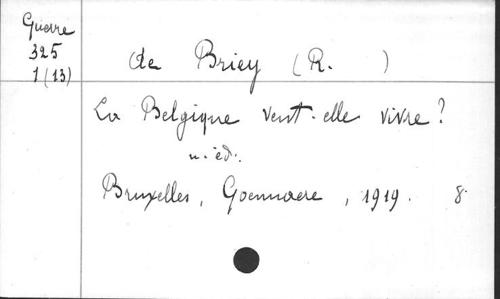 Guerre
325
1 (13)
de Briey (R. )
La Belgique veut-elle vivre?
n. éd.
Bruxelles, Goemaere, 1919. 8°